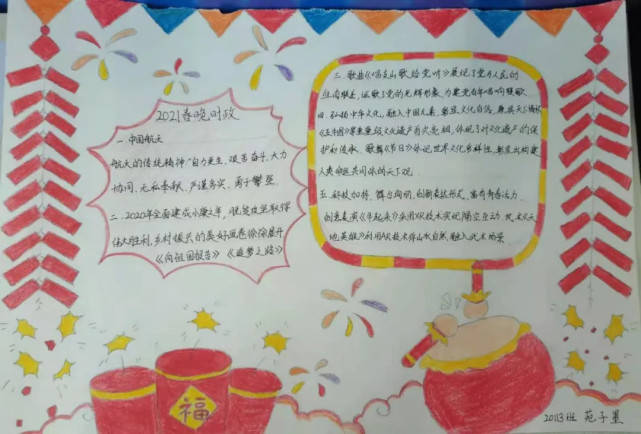 2021春晚时政
一.中国航天
航天的传统精神“自力更生,艰苦奋斗,大力
协同,无私奉献,严谨务实,勇于攀登
二、2020年全面建成小康之年,脱贫攻坚取得
伟大胜利,乡村振兴的美好画卷徐徐展开
《向祖国报告》《追梦之路》
三、歌曲《唱支山歌给党听》展现了党与人民的
血肉联系,讴歌了党的光辉形象,为建党百年唱响赞歌
四、弘扬中华文化,融入中国元素,彰显文化自信
护和传承,歌舞《节日》体现世界文化多样性
人类命运共同体的天下观
五、科技加持,舞台绚丽,创新表达形式,富有青春活力
地英雄》利用AR技术将山水自然融入武术场景
福
2013班 苑子墨